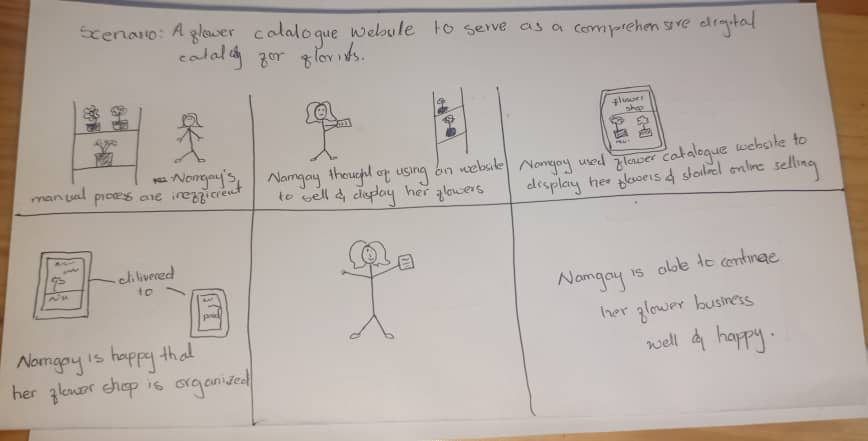 Scenario: A flower catalogue website to serve as a comprehensive digital
catalog for florists.
flower
shop
Namgay's
manual process are inefficient
Namgay thought of using an website
to sell & display her flowers
Namgay used flower catalogue website to
display her flowers & started online selling
delivered
to
paid
Namgay is happy that
her flower shop is organized
Namgay is able to continue
her flower business
well & happy.